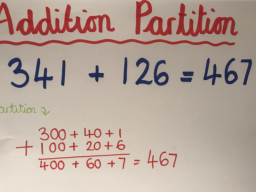 Addition Partition
341 + 126 = 467
300 + 40 + 1
+ 100 + 20 + 6
400 + 60 + 7 = 467